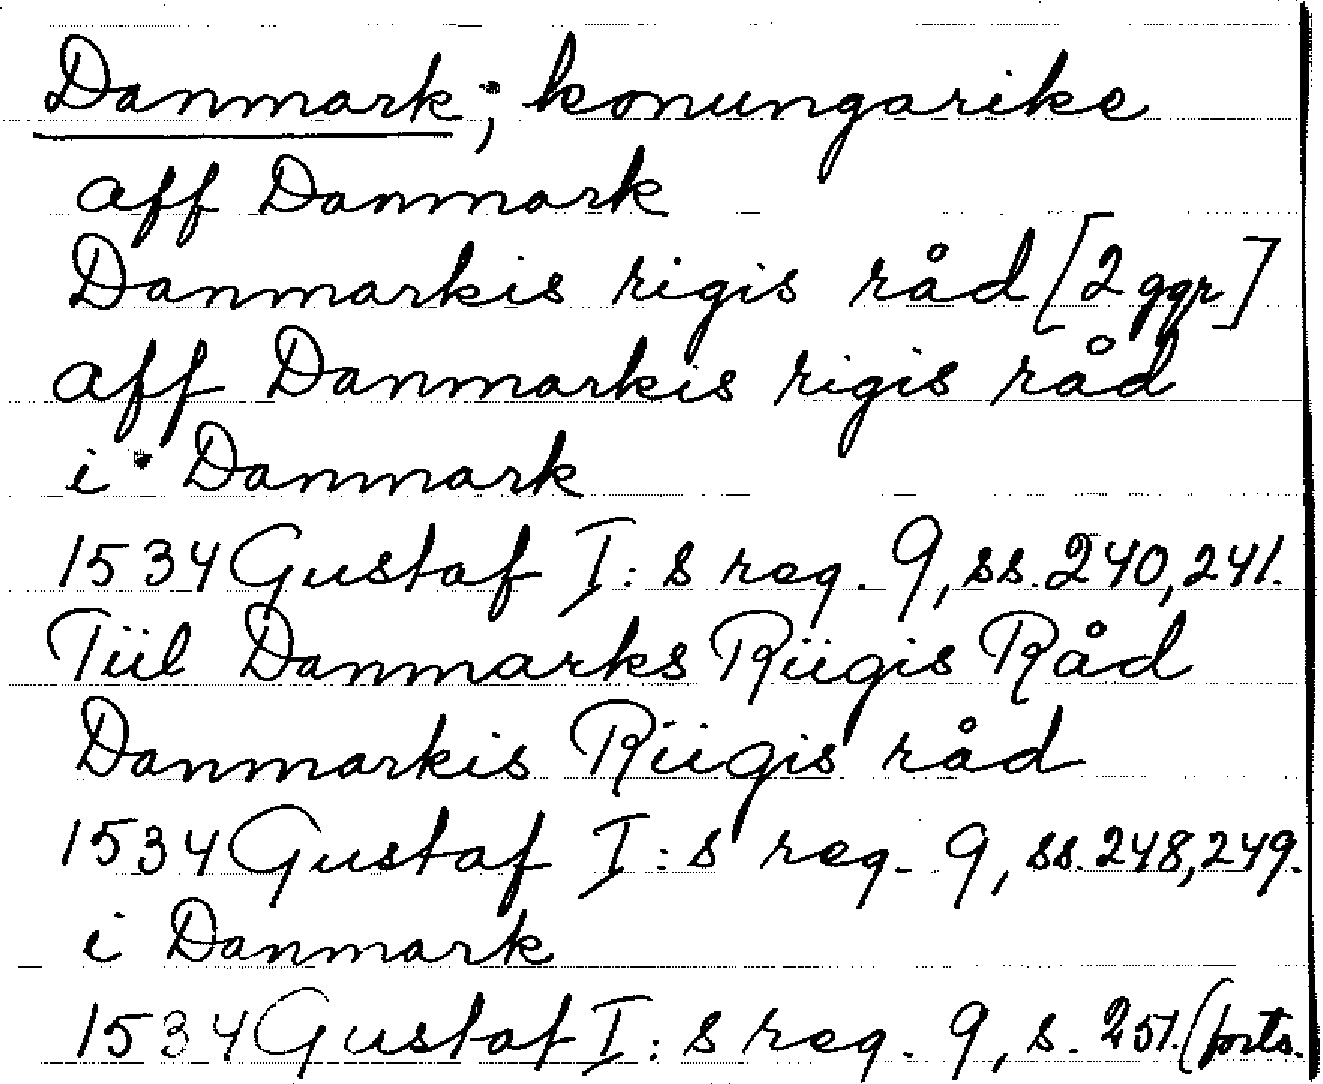 Danmark; konungarike
aff Danmark
Danmarkis rigis råd [2 ggr]
aff Danmarkis rigis råd
i Danmark
1534 Gustaf I:s reg. 9, ss. 240, 241.
Tiil Danmarks Riigis Råd
Danmarkis Riigis råd
1534 Gustaf I:s reg. 9, ss. 248, 249.
i Danmark
1534 Gustaf I:s reg. 9, s. 251. (forts.